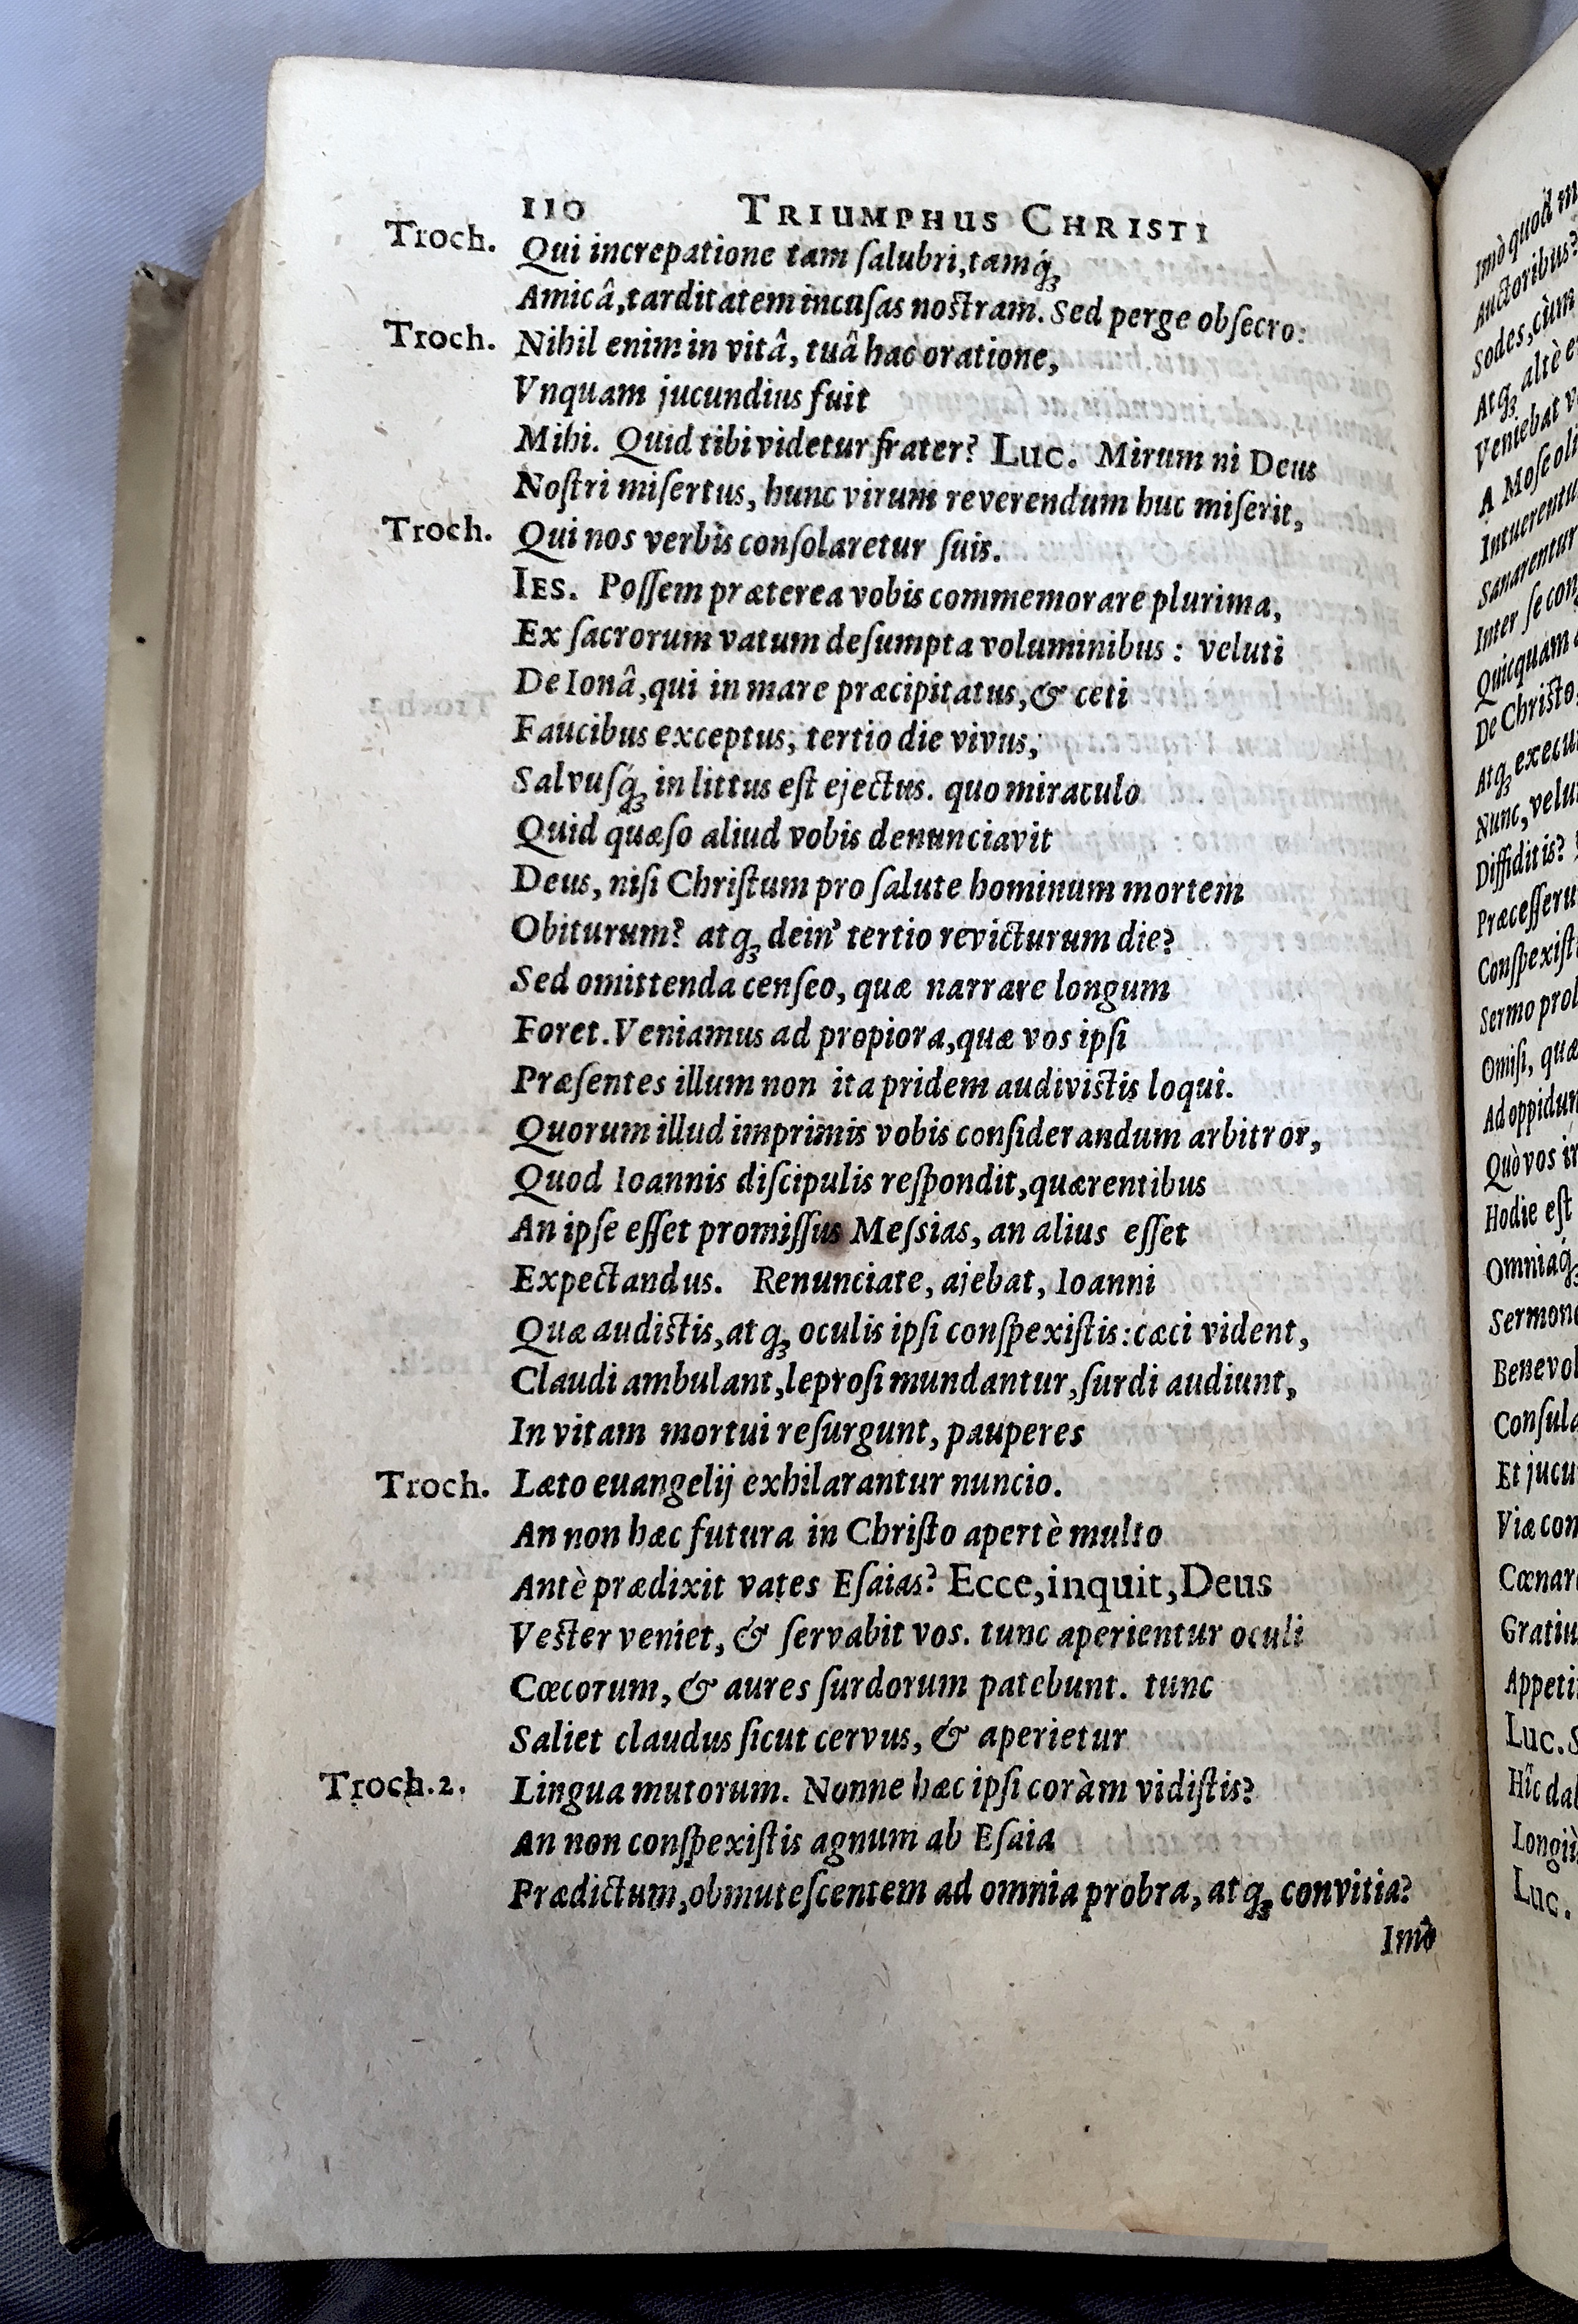 110 TRIUMPHUS CHRISTI
Troch. Qui increpatione tam ſalubri, tamq́ꝫ
Amicâ, tarditatem incuſas noſtram. Sed perge obſecro:
Troch. Nihil enim in vitâ, tuâ hac oratione,
Vnquam jucundius fuit
Mihi. Quid tibi videtur frater? Luc. Mirum ni Deus
Noſtri miſertus, hunc virum reverendum huc miſerit,
Troch. Qui nos verbis conſolaretur ſuis.
IES. Poſſem præterea vobis commemorare plurima,
Ex ſacrorum vatum deſumpta voluminibus: veluti
De Ionâ, qui in mare præcipitatus, & ceti
Faucibus exceptus, tertio die vivus,
Salvuſq́ꝫ in littus eſt ejectus. quo miraculo
Quid quæſo aliud vobis denunciavit
Deus, niſi Chriſtum pro ſalute hominum mortem
Obiturum? atqꝫ dein' tertio revicturum die?
Sed omittenda cenſeo, quæ narrare longum
Foret. Veniamus ad propiora, quæ vos ipſi
Præſentes illum non ita pridem audiviſtis loqui.
Quorum illud imprimis vobis conſiderandum arbitror,
Quod Ioannis diſcipulis reſpondit, quærentibus
An ipſe eſſet promiſſus Meſsias, an alius eſſet
Expectandus. Renunciate, ajebat, Ioanni
Quæ audiſtis, atqꝫ oculis ipſi conſpexiſtis: cæci vident,
Claudi ambulant, leproſi mundantur, ſurdi audiunt,
In vitam mortui reſurgunt, pauperes
Troch. Læto euangelij exhilarantur nuncio.
An non hæc futura in Chriſto apertè multo
Antè prædixit vates Eſaias? Ecce, inquit, Deus
Veſter veniet, & ſervabit vos. tunc aperientur oculi
Cœcorum, & aures ſurdorum patebunt. tunc
Saliet claudus ſicut cervus, & aperietur
Troch.2. Lingua mutorum. Nonne hæc ipſi coràm vidiſtis?
An non conſpexiſtis agnum ab Eſaia
Prædictum, obmuteſcentem ad omnia probra, atqꝫ convitia?
Imò
Imò quod
Auctoribus?
Sodes, cùm
Atqꝫ altè
Veniebat
A Moſe
Intuerentu
Sanarentur
Inter ſe con
Quicquam
De Chriſto,
Atqꝫ execu
Nunc, velu
Diffiditis?
Præceſſeru
Conſpexiſt
Sermo prol
Omiſi, quæ
Ad oppidum
Quò vos
Hodie eſt
Omniaq́ꝫ
Sermone
Benevol
Conſula
Et jucu
Viæ con
Cœnar
Gratiu
Appeti
Luc. S
Hîc dab
Longiù
Luc.